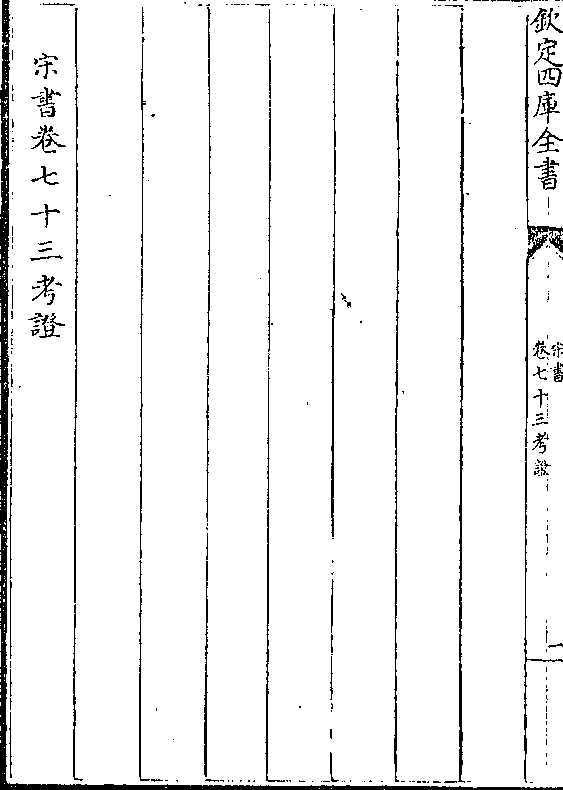 欽定四庫全書
宋書
卷七十三考證
宋書卷七十三考證